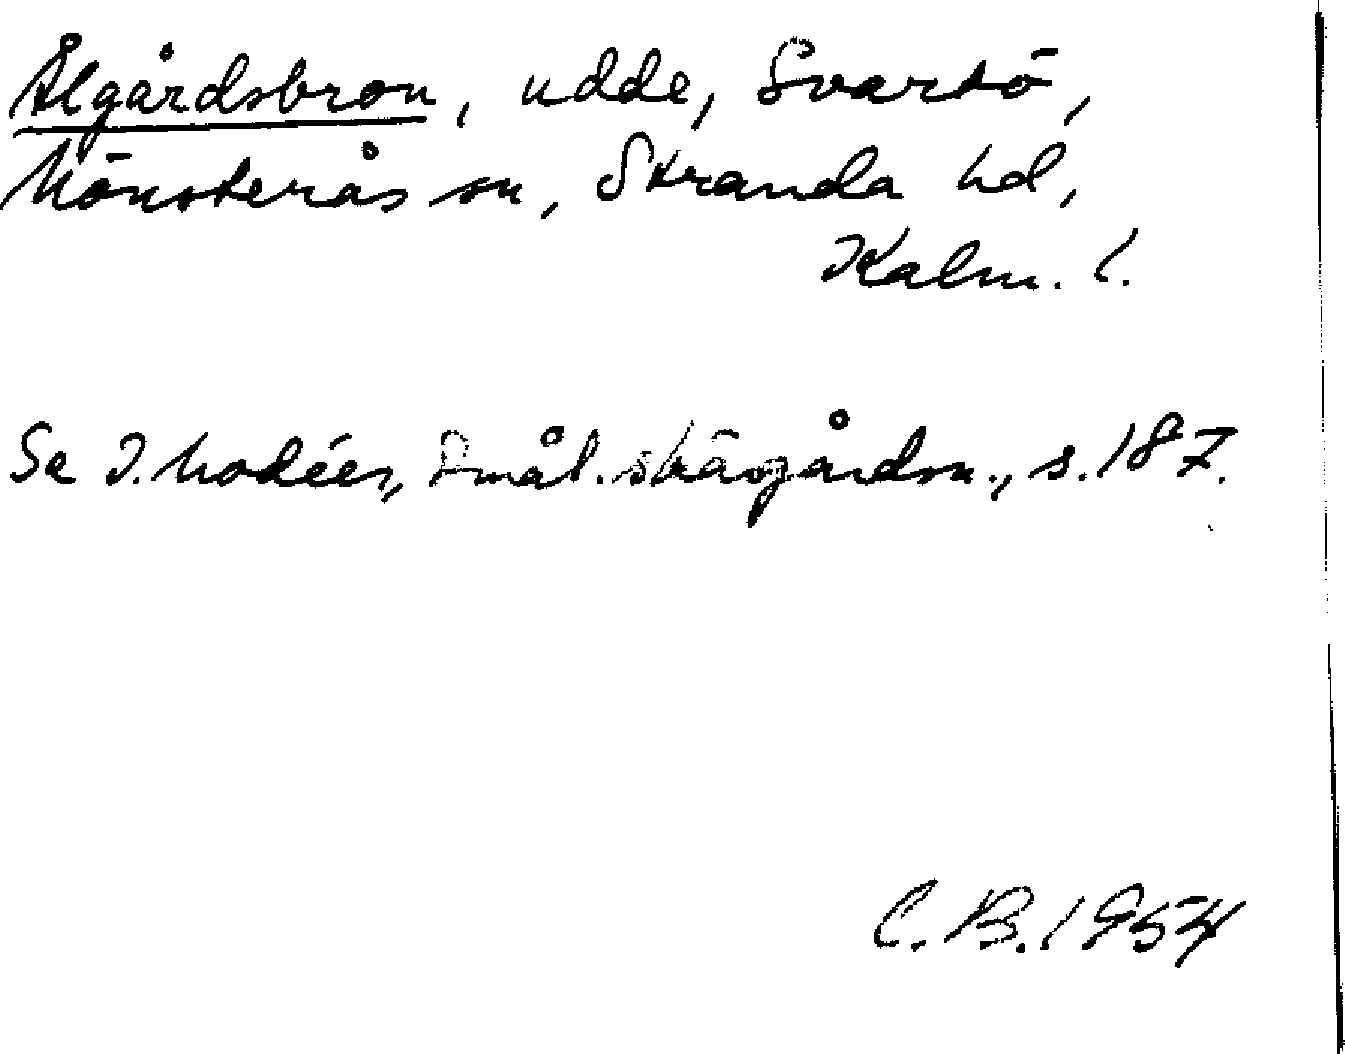 Ålgårdsbron, udde, Svartö,
Mönsterås sn, Stranda hd,
Kalm. l.
Se I. Modéer, Smål. skärgårdsn., s. 187.
C. B. 1954